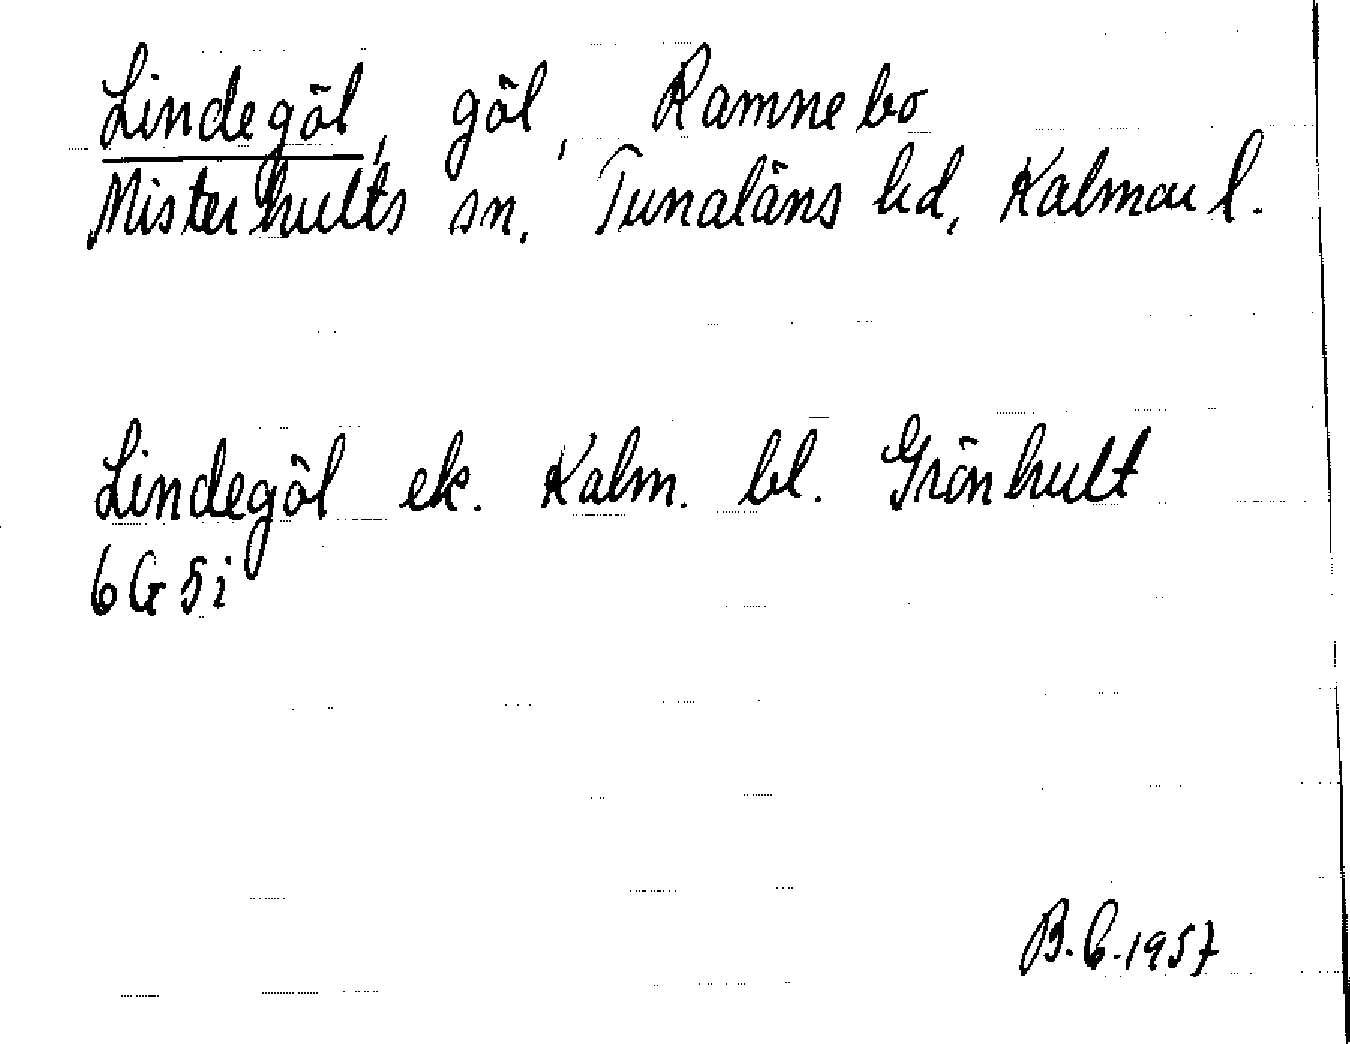 Lindegöl, göl, Ramnebo
Misterhults sn. Tunaläns hd, Kalmar l.
Lindegöl ek. Kalm. bl. Grönhult
6G5i
B.G.1957